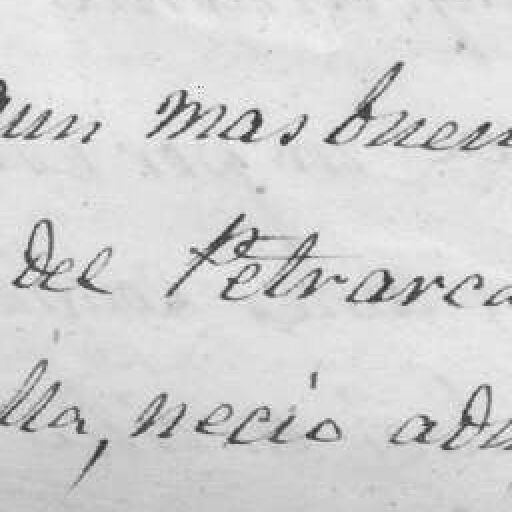 aun mas buen
del Petrarca
lla, necio adm